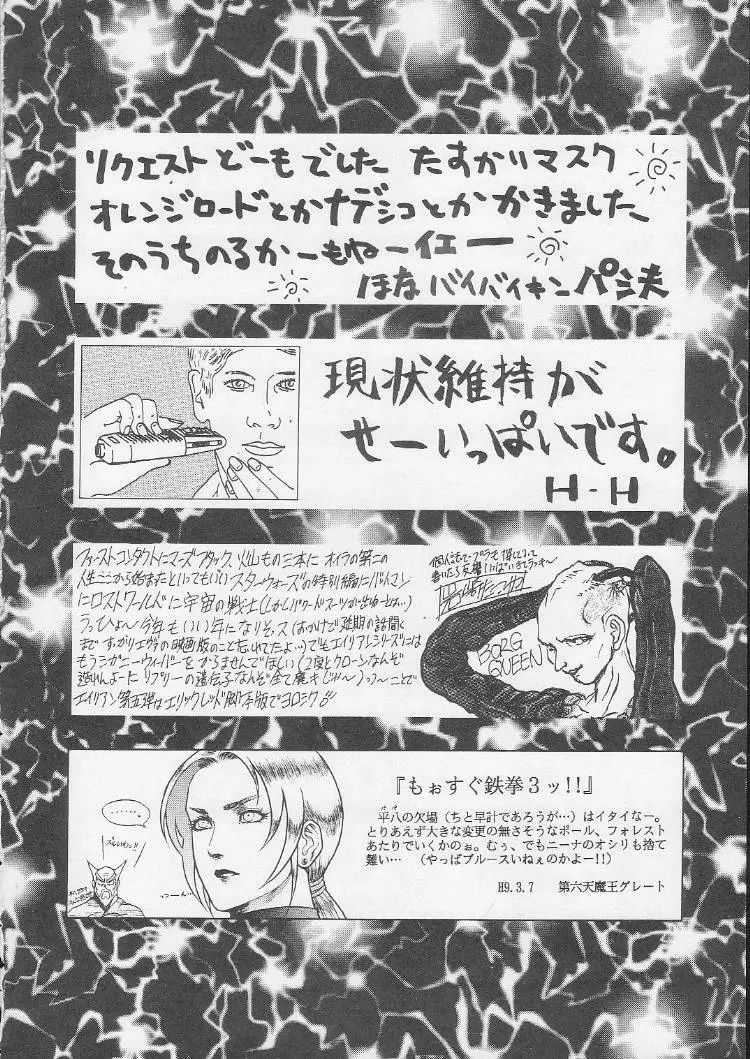 リクエストどーもでした たすかりマスク
オレンジロードとかナデシコとか かきました、
そのうちのるかーもねーイエー
ほな バイバイキン パシ夫
現状維持が
せーいっぱいです。
H-H
ファーストコンタクトにマーズアタック、火山もの三本に オイラの第二の
人生ここから始まったといってもいい スターウォーズの特別編にバットマン
にロストワールドに宇宙の戦士(しかしパワードスーツが出ねーとは…)
うっひょ〜 今年もいい年になりそ
まで すっかりエヴァの映画版のこと忘れてたよ…)でもエイリアンシリーズには
もうシガニーウィーバーを からませんでほしい
エイリアン第五弾はエリックレッド脚本版でヨロシク
BORG
QUEEN
『もぉすぐ鉄拳3ッ!!』
平八の欠場(ちと早計であろうが…)はイタイなー。
とりあえず大きな変更の無さそうなポール、フォレスト
あたりでいくかのぉ。むぅ、でもニーナのオシリも捨て
難い… (やっぱブルースいねぇのかよー!!)
H9.3.7 第六天魔王グレート
……
っつーん